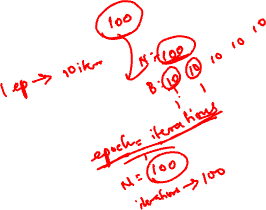 100
N = 100
1 ep → 10 iter
B: 10 10 10 10 10
epoch = iterations
N = 100
iterations → 100